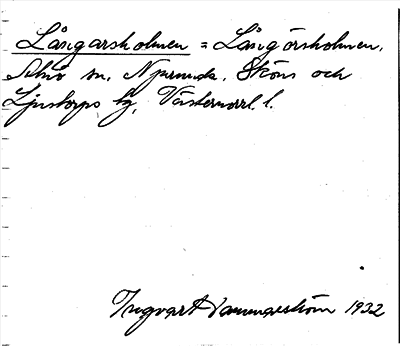 Långarsholmen = Långörsholmen,
Alnö sn, Njurunda, Sköns och
Ljustorps tg, Västernorrl. l.
Ingvart Dammeström 1932